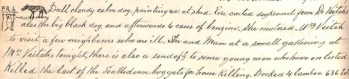 Dull cloudy calm day, painting up at shed. I've carted dog kennel from Dr Veitchs
also the big black dog and afterwards 2 cases of benzine. She motored. Mrs Veitch
to visit a few neighbours who are ill. She and Mum at a small gathering at
Mrs Veitchs tonight, there is also a send off to some young men who have enlisted
Killed the last of the Southdown hoggets for Farm Killing. Booked 4 lambs